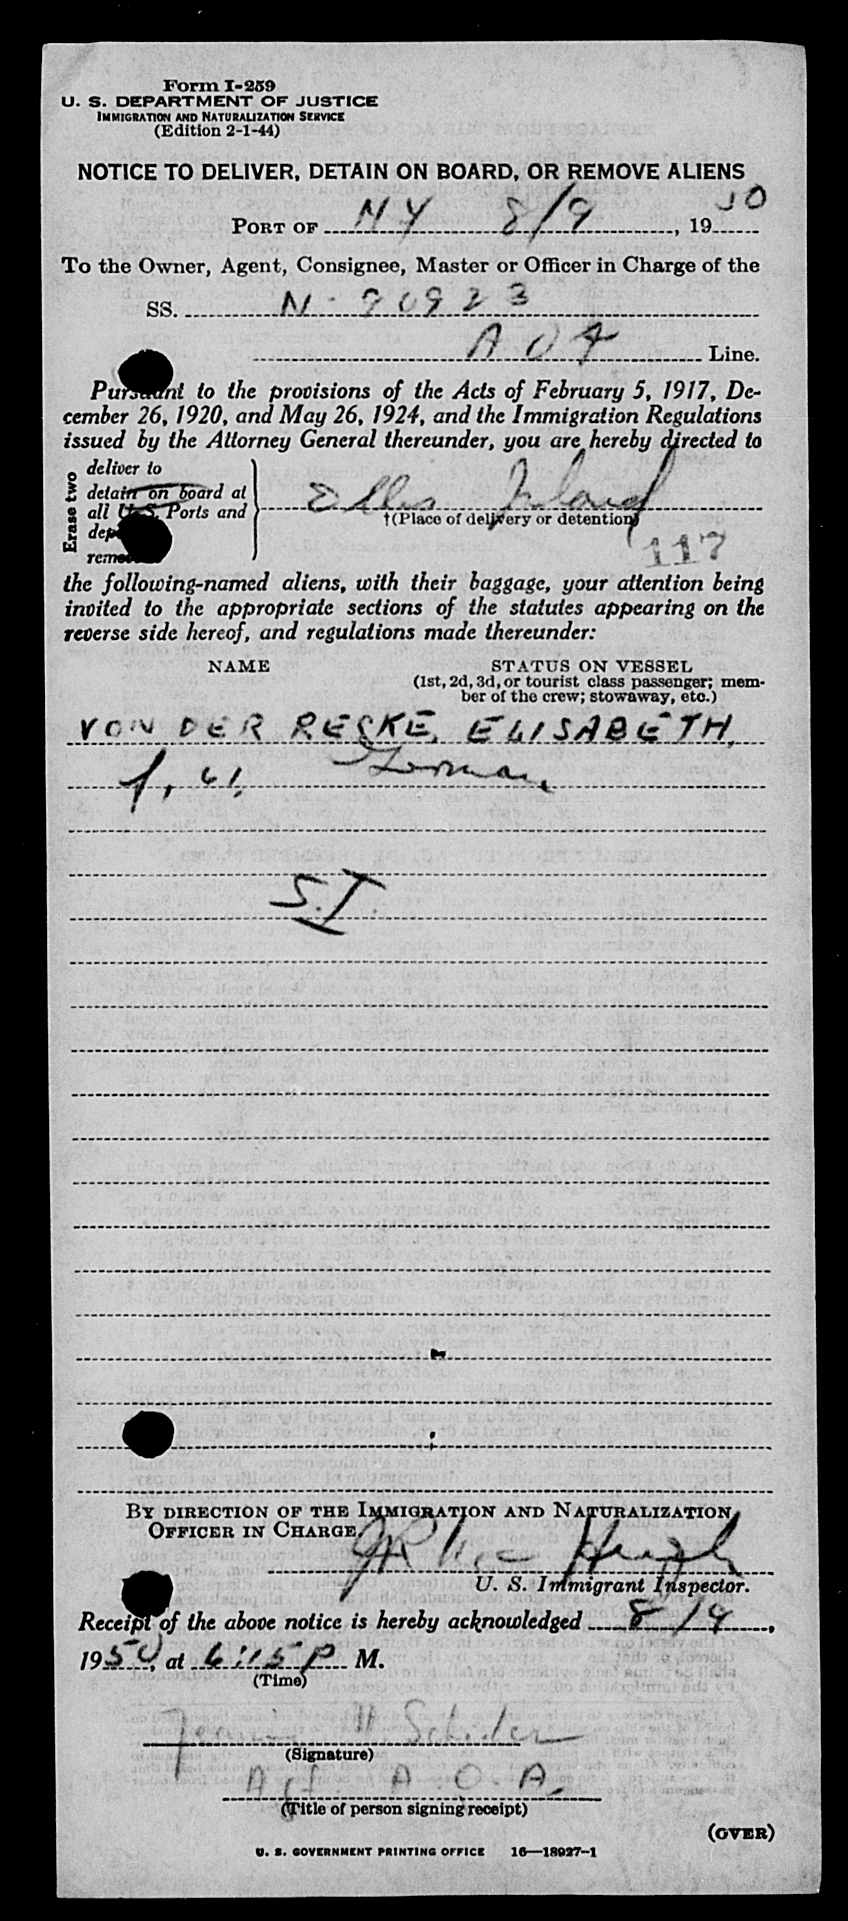 Form I-259
U. S. DEPARTMENT OF JUSTICE
IMMIGRATION AND NATURALIZATION SERVICE
(Edition 2-1-44)
NOTICE TO DELIVER, DETAIN ON BOARD, OR REMOVE ALIENS
PORT OF NY 8/9, 1950
To the Owner, Agent, Consignee, Master or Officer in Charge of the
SS. N-90923
AOA Line.
Pursuant to the provisions of the Acts of February 5, 1917, De-
cember 26, 1920, and May 26, 1924, and the Immigration Regulations
issued by the Attorney General thereunder, you are hereby directed to
Erase two
deliver to
detain on board at
all U.S. Ports and
remove
Ellis Island
†(Place of delivery or detention)
117
the following-named aliens, with their baggage, your attention being
invited to the appropriate sections of the statutes appearing on the
reverse side hereof, and regulations made thereunder:
NAME STATUS ON VESSEL
(1st, 2d, 3d, or tourist class passenger; mem-
ber of the crew; stowaway, etc.)
VON DER RESKE, ELISABETH,
f, 61, German
S.I.
BY DIRECTION OF THE IMMIGRATION AND NATURALIZATION
OFFICER IN CHARGE.
U. S. Immigrant Inspector.
Receipt of the above notice is hereby acknowledged 8/9,
1950, at 6:15 P M.
(Time)
(Signature)
Agt A.O.A.
(Title of person signing receipt)
(OVER)
U. S. GOVERNMENT PRINTING OFFICE 16—18927-1